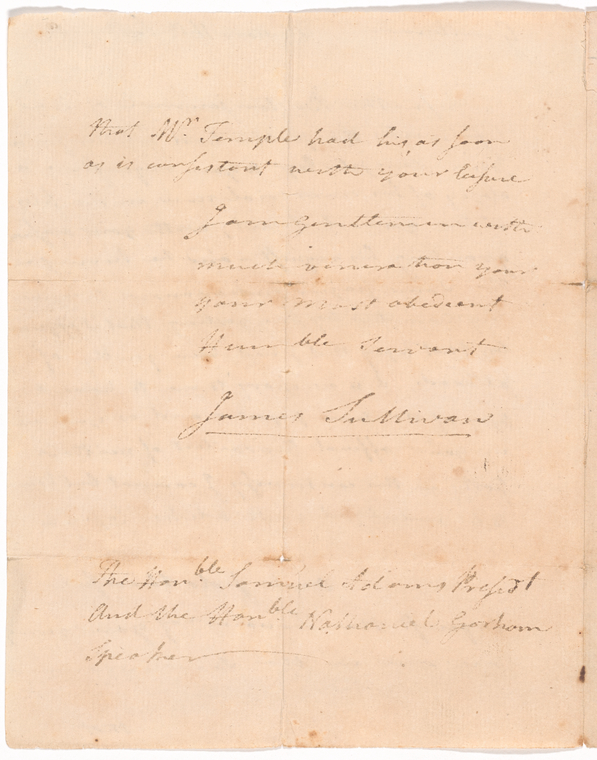 that Mr. Temple had his, as soon
as is consistent with your leisure
I am Gentlemen with
much veneration your
your most obedient
Humble Servant
James Sullivan
The Honble Samuel Adams Presidt
And the Honble Nathaniel Gorham
Speaker